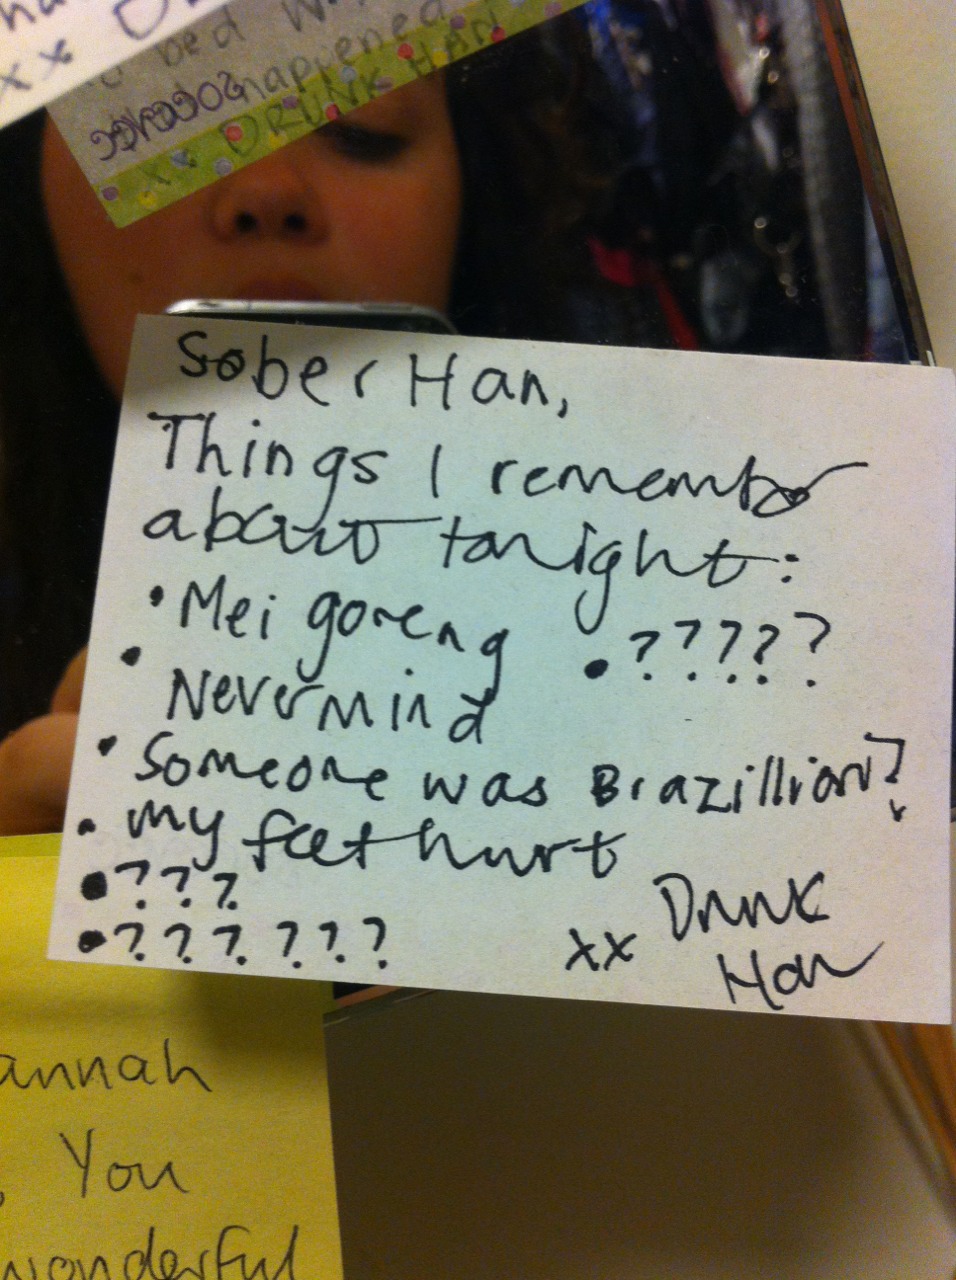 xx
bed
happened
xx DRUNK HAN
Sober Han,
Things I remember
about tonight:
• Mei goreng
• ?????
• Nevermind
• Someone was Brazillian?
• my feet hurt
• ???
• ??????
xx Drunk
Han
annah
You
wonderful